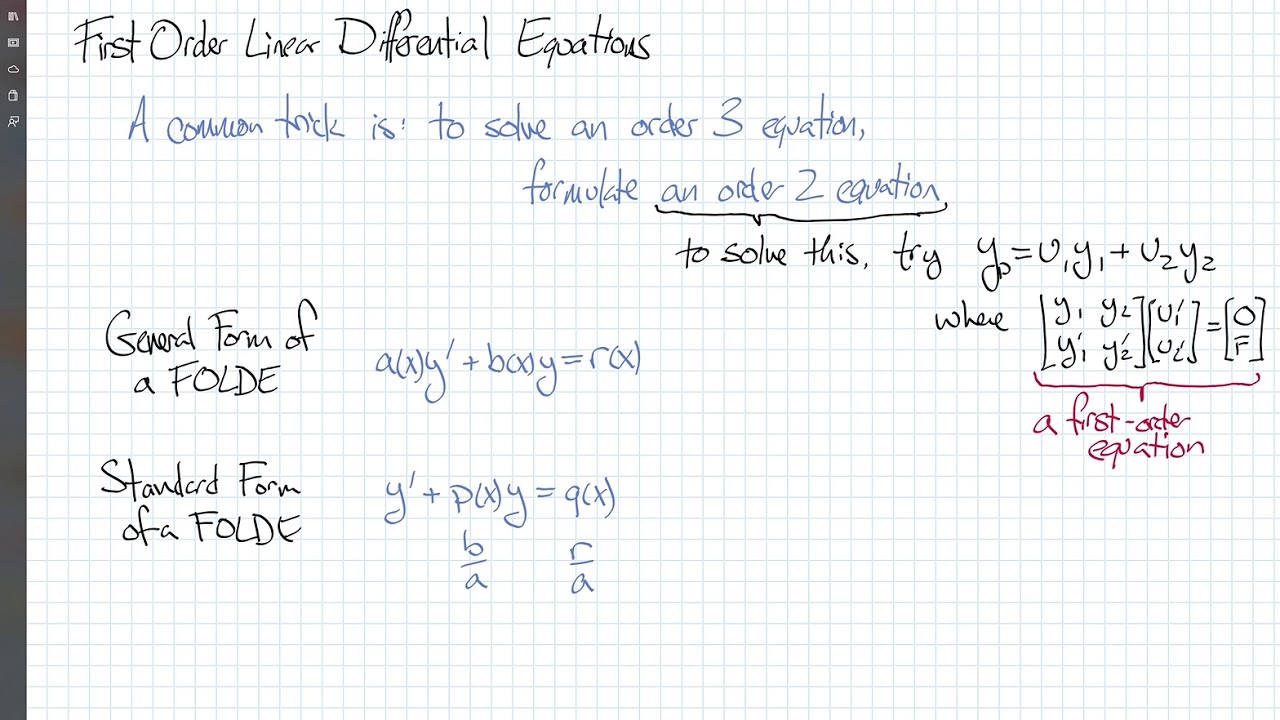 First Order Linear Differential Equations
A common trick is: to solve an order 3 equation,
formulate an order 2 equation
to solve this, try y_p = v₁y₁ + v₂y₂
where [y₁ y₂; y₁′ y₂′][v₁′; v₂′] = [0; F]
a first-order
equation
General Form of
a FOLDE
a(x)y′ + b(x)y = r(x)
Standard Form
of a FOLDE
y′ + p(x)y = q(x)
b/a r/a